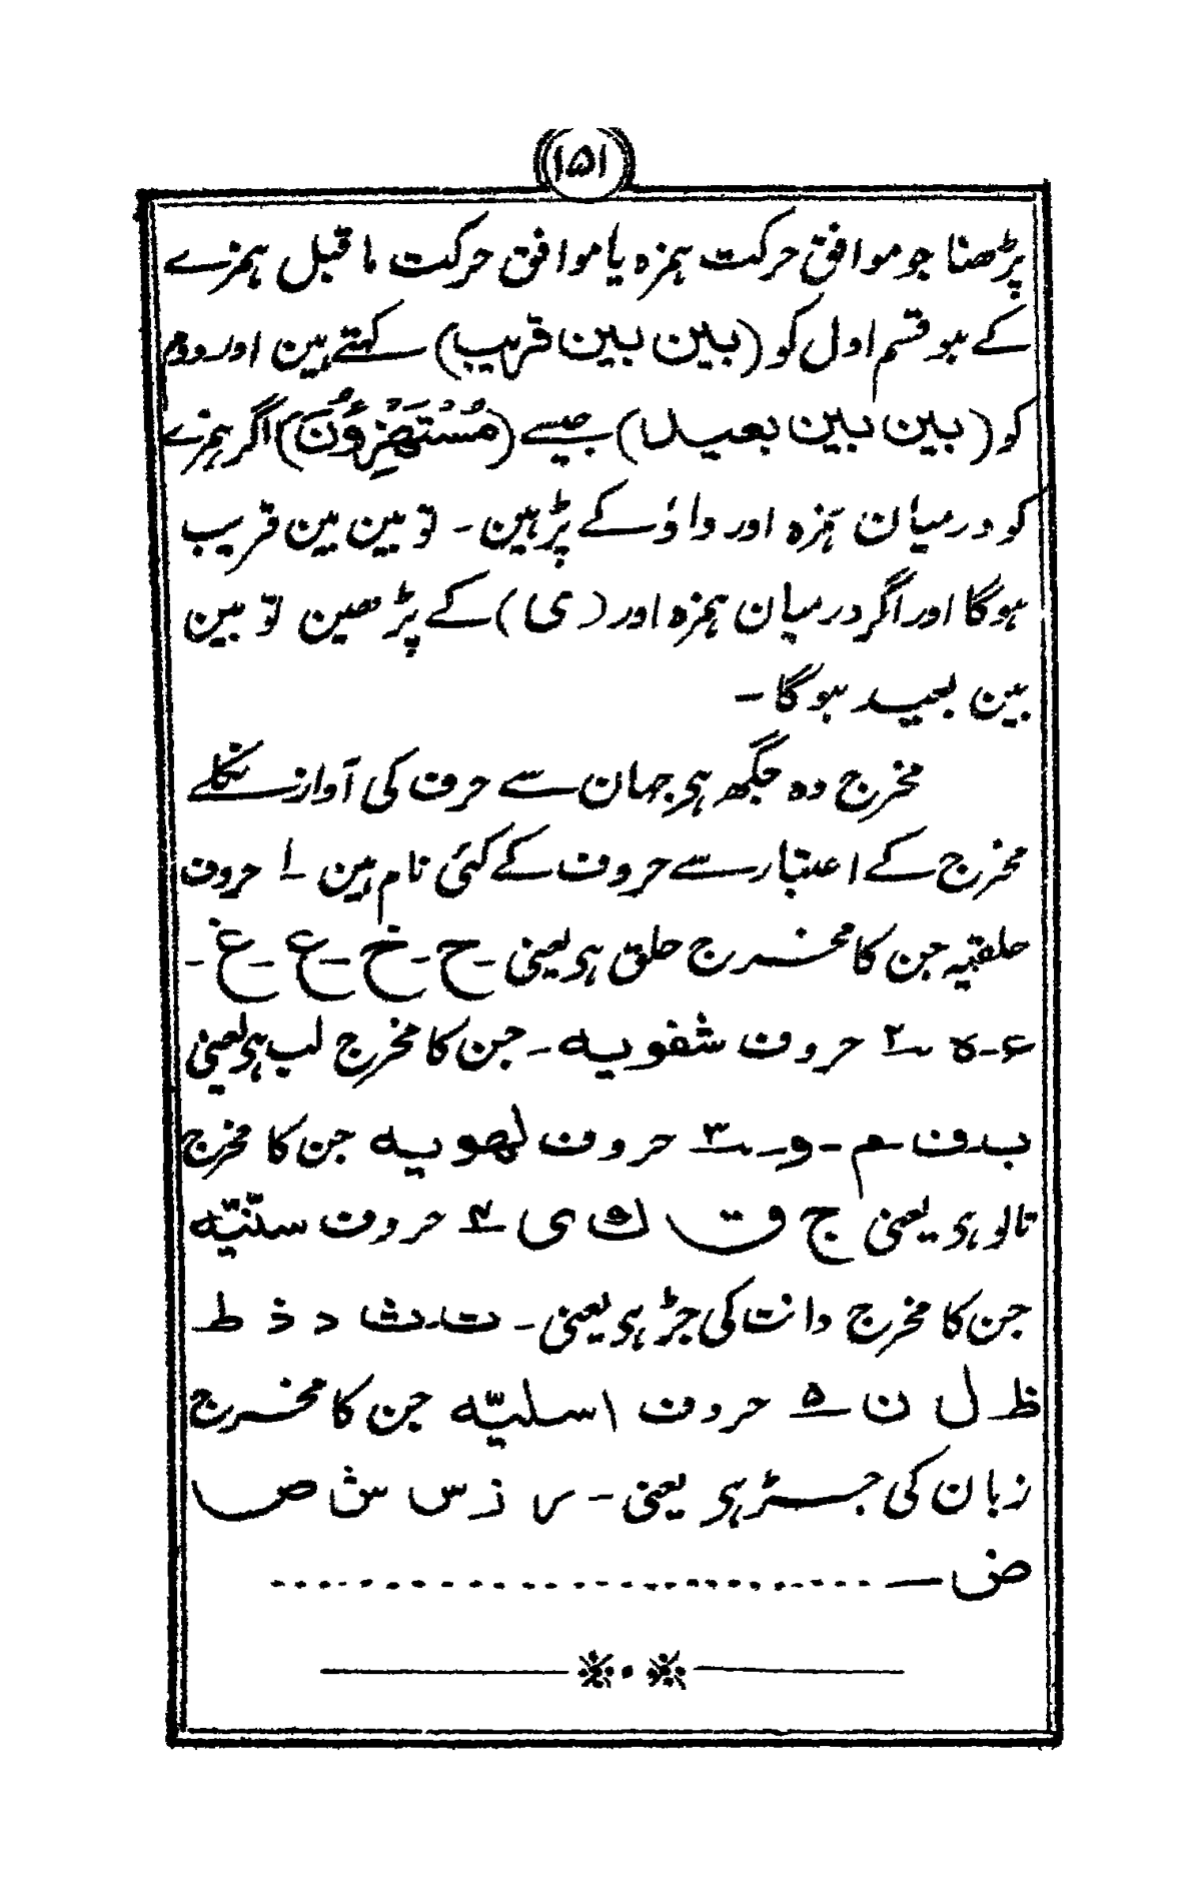 ۱۵۱
پڑھنا جو موافق حرکت ہمزہ یا موافق حرکت ما قبل ہمزے
کے ہو قسم اول کو (بین بین قریب) کہتے ہین اور دوم
کو (بین بین بعید) جیسے (مُسْتَهْزِؤُنَ) اگر ہمزے
کو درمیان ہمزہ اور واؤ کے پڑہین ۔ تو بین بین قریب
ہوگا اور اگر درمیان ہمزہ اور (ی) کے پڑھین تو بین
بین بعید ہوگا ۔
مخرج وہ جگھ ہی جہان سے حرف کی آواز نکلے
مخرج کے اعتبار سے حروف کے کئی نام ہین ۱ حروف
حلقیہ جن کا مخرج حلق ہی یعنی ۔ ح ۔ خ ۔ ع ۔ غ ۔
ء ۔ ہ ۲ حروف شفویه ۔ جن کا مخرج لب ہی یعنی
ب ۔ ف ۔ م ۔ و ۔ ۳ حروف لهویه جن کا مخرج
تالو ہی یعنی ج ق ك ی ۴ حروف سنّیّه
جن کا مخرج دانت کی جڑ ہی یعنی ۔ ت ۔ ث د ذ ط
ظ ل ن ۵ حروف اسلیّه جن کا مخرج
زبان کی جڑ ہی یعنی ۔ ر ز س ش ص
ض ۔